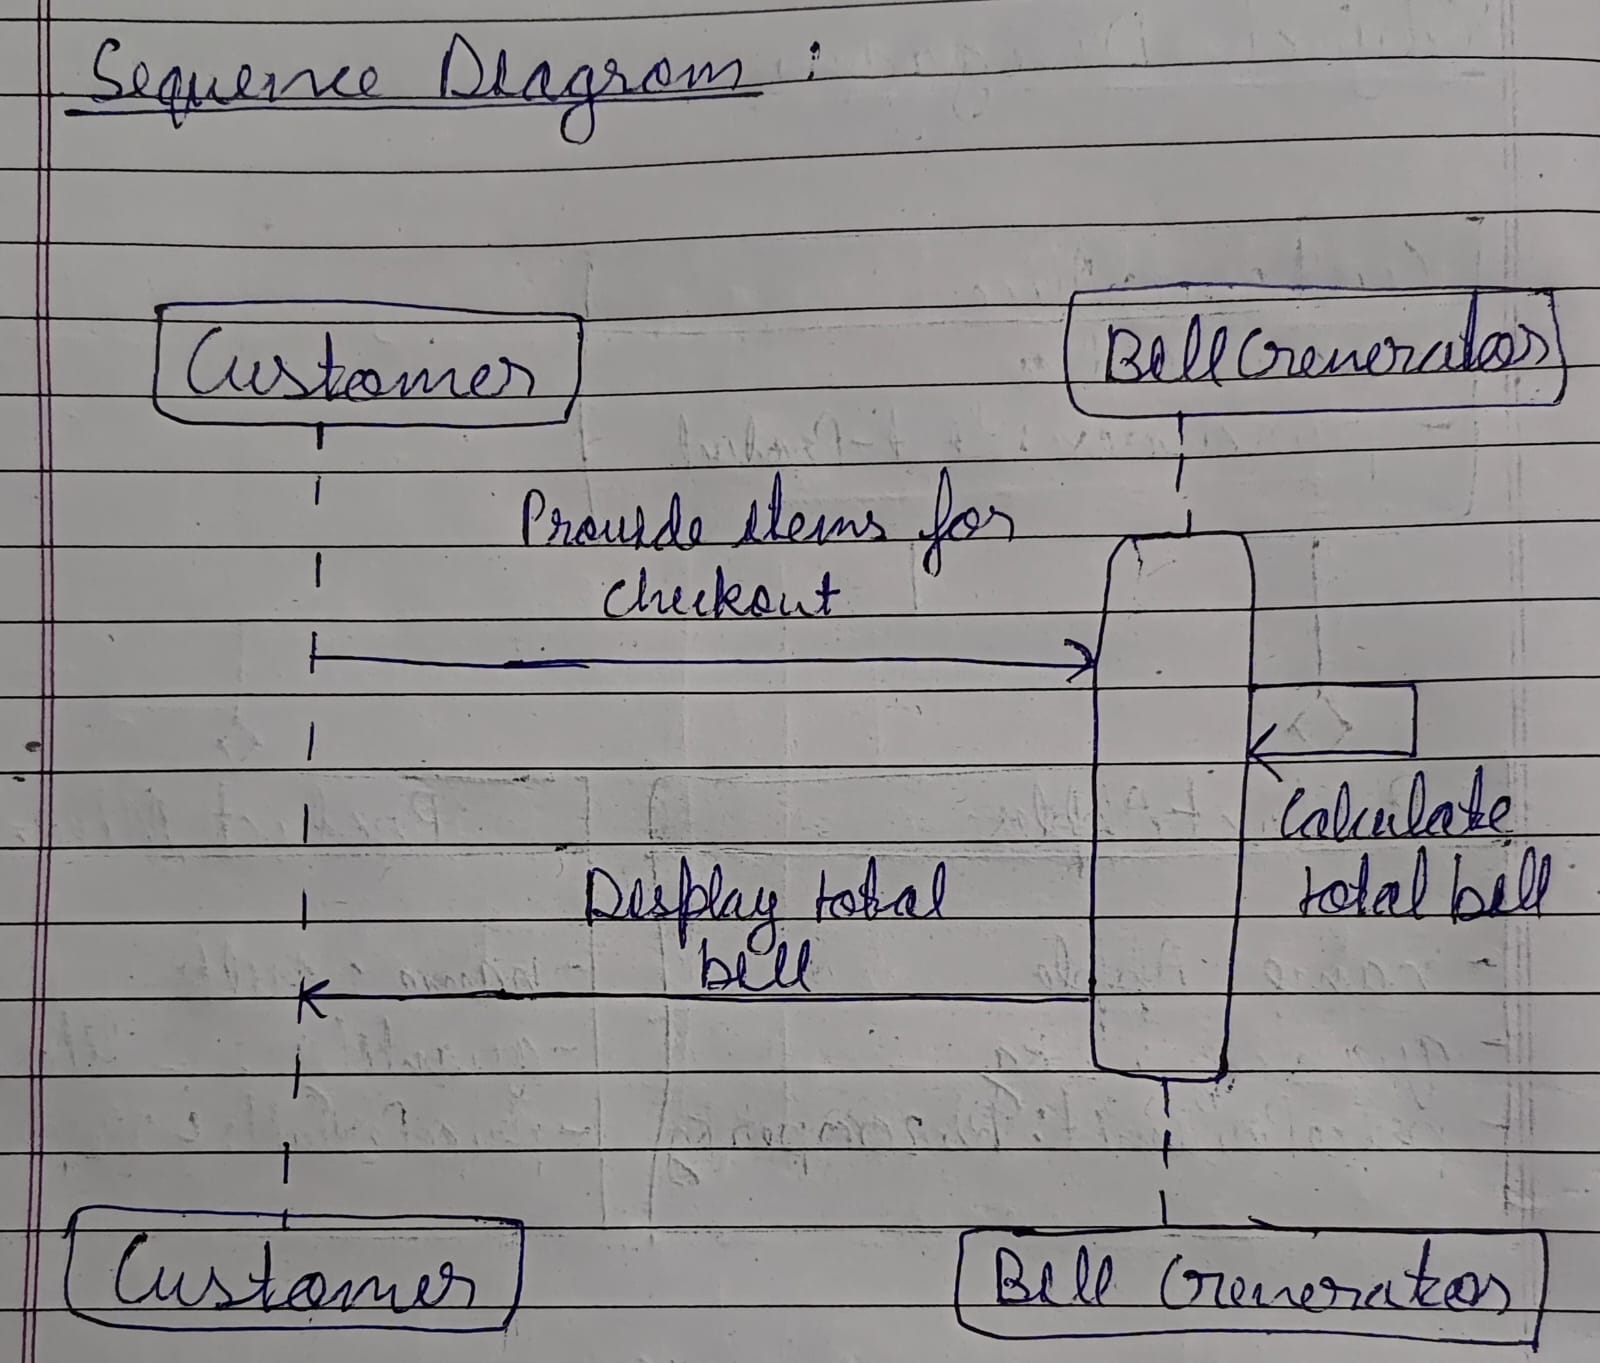 Sequence Diagram :
Customer
Bill Generator
Provide items for
checkout
Calculate
total bill
Display total
bill
Customer
Bill Generator